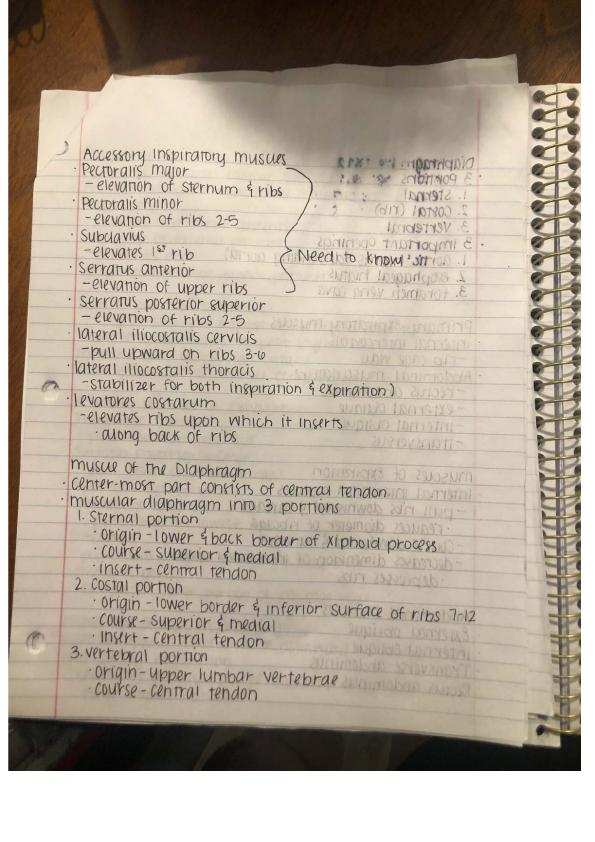 Accessory Inspiratory muscles
· Pectoralis major
– elevation of sternum & ribs
· Pectoralis minor
– elevation of ribs 2-5
· Subclavius
– elevates 1st rib
Need to know
· Serratus anterior
– elevation of upper ribs
· Serratus posterior superior
– elevation of ribs 2-5
· lateral iliocostalis cervicis
– pull upward on ribs 3-6
· lateral iliocostalis thoracis
– stabilizer for both inspiration & expiration)
· levatores costarum
– elevates ribs upon which it inserts
· along back of ribs
muscle of the Diaphragm
· center-most part consists of central tendon
· muscular diaphragm into 3 portions
1. Sternal portion
· origin – lower & back border of xiphoid process
· course – superior & medial
· insert – central tendon
2. Costal portion
· origin – lower border & inferior surface of ribs 7-12
· course – superior & medial
· insert – central tendon
3. vertebral portion
· origin – upper lumbar vertebrae
· course – central tendon